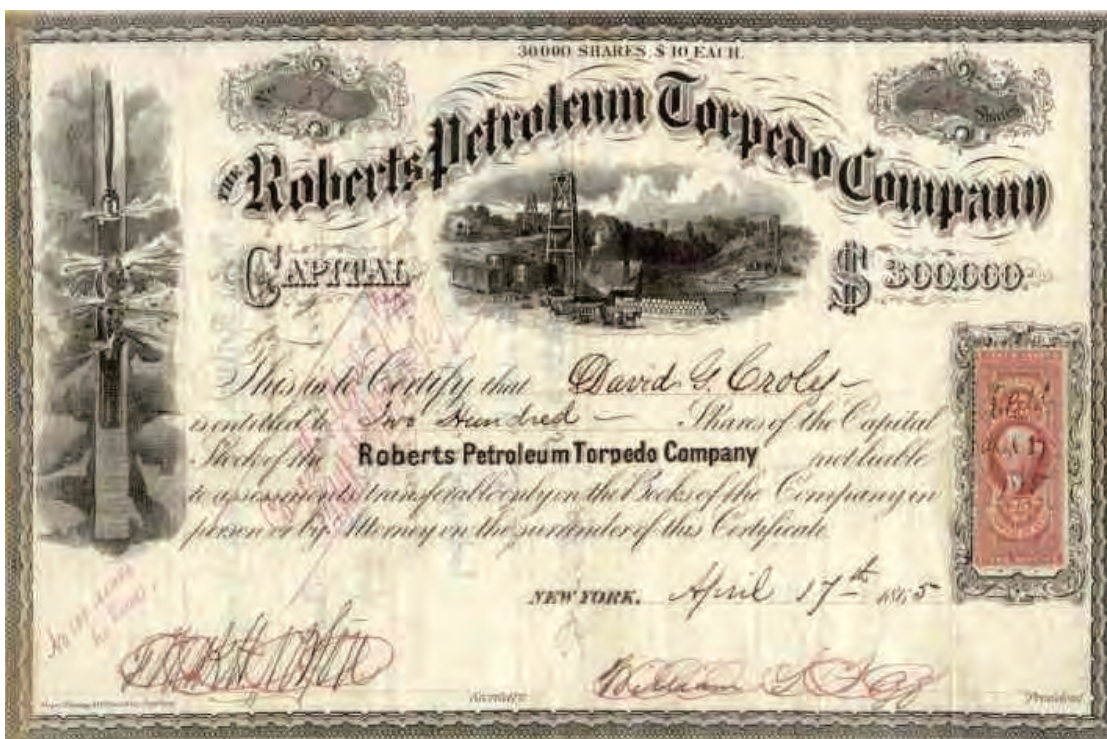 30000 SHARES, $10 EACH.
No
Shares
THE Roberts Petroleum Torpedo Company
CAPITAL $300.000.
This is to Certify that David G. Croly
is entitled to Two Hundred Shares of the Capital
Stock of the Roberts Petroleum Torpedo Company not liable
to assessments transferable only on the Books of the Company in
person or by Attorney on the surrender of this Certificate
NEW YORK. April 17th 1865
Secretary
William
President